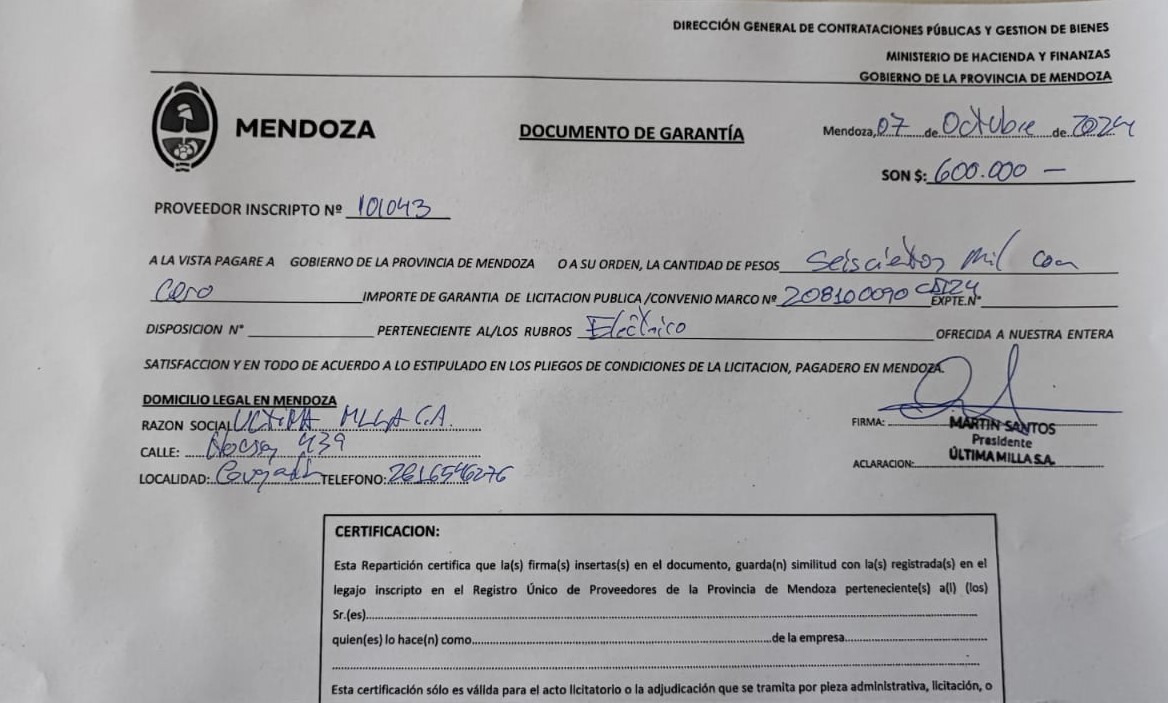 DIRECCIÓN GENERAL DE CONTRATACIONES PÚBLICAS Y GESTION DE BIENES
MINISTERIO DE HACIENDA Y FINANZAS
GOBIERNO DE LA PROVINCIA DE MENDOZA
MENDOZA
DOCUMENTO DE GARANTÍA
Mendoza, 07 de Octubre de 2024
SON $: 600.000 —
PROVEEDOR INSCRIPTO Nº 101043
A LA VISTA PAGARE A GOBIERNO DE LA PROVINCIA DE MENDOZA O A SU ORDEN, LA CANTIDAD DE PESOS Seiscientos mil con
Cero IMPORTE DE GARANTIA DE LICITACION PUBLICA /CONVENIO MARCO Nº 208100090 EXPTE.N°
DISPOSICION N° PERTENECIENTE AL/LOS RUBROS Eléctrico OFRECIDA A NUESTRA ENTERA
SATISFACCION Y EN TODO DE ACUERDO A LO ESTIPULADO EN LOS PLIEGOS DE CONDICIONES DE LA LICITACION, PAGADERO EN MENDOZA.
DOMICILIO LEGAL EN MENDOZA
RAZON SOCIAL ULTIMA MILLA S.A.
CALLE: 439
LOCALIDAD: TELEFONO: 2616546276
FIRMA:
MARTIN SANTOS
Presidente
ÚLTIMA MILLA S.A.
ACLARACION:
CERTIFICACION:
Esta Repartición certifica que la(s) firma(s) insertas(s) en el documento, guarda(n) similitud con la(s) registrada(s) en el
legajo inscripto en el Registro Único de Proveedores de la Provincia de Mendoza perteneciente(s) a(l) (los)
Sr.(es)
quien(es) lo hace(n) como de la empresa
Esta certificación sólo es válida para el acto licitatorio o la adjudicación que se tramita por pieza administrativa, licitación, o